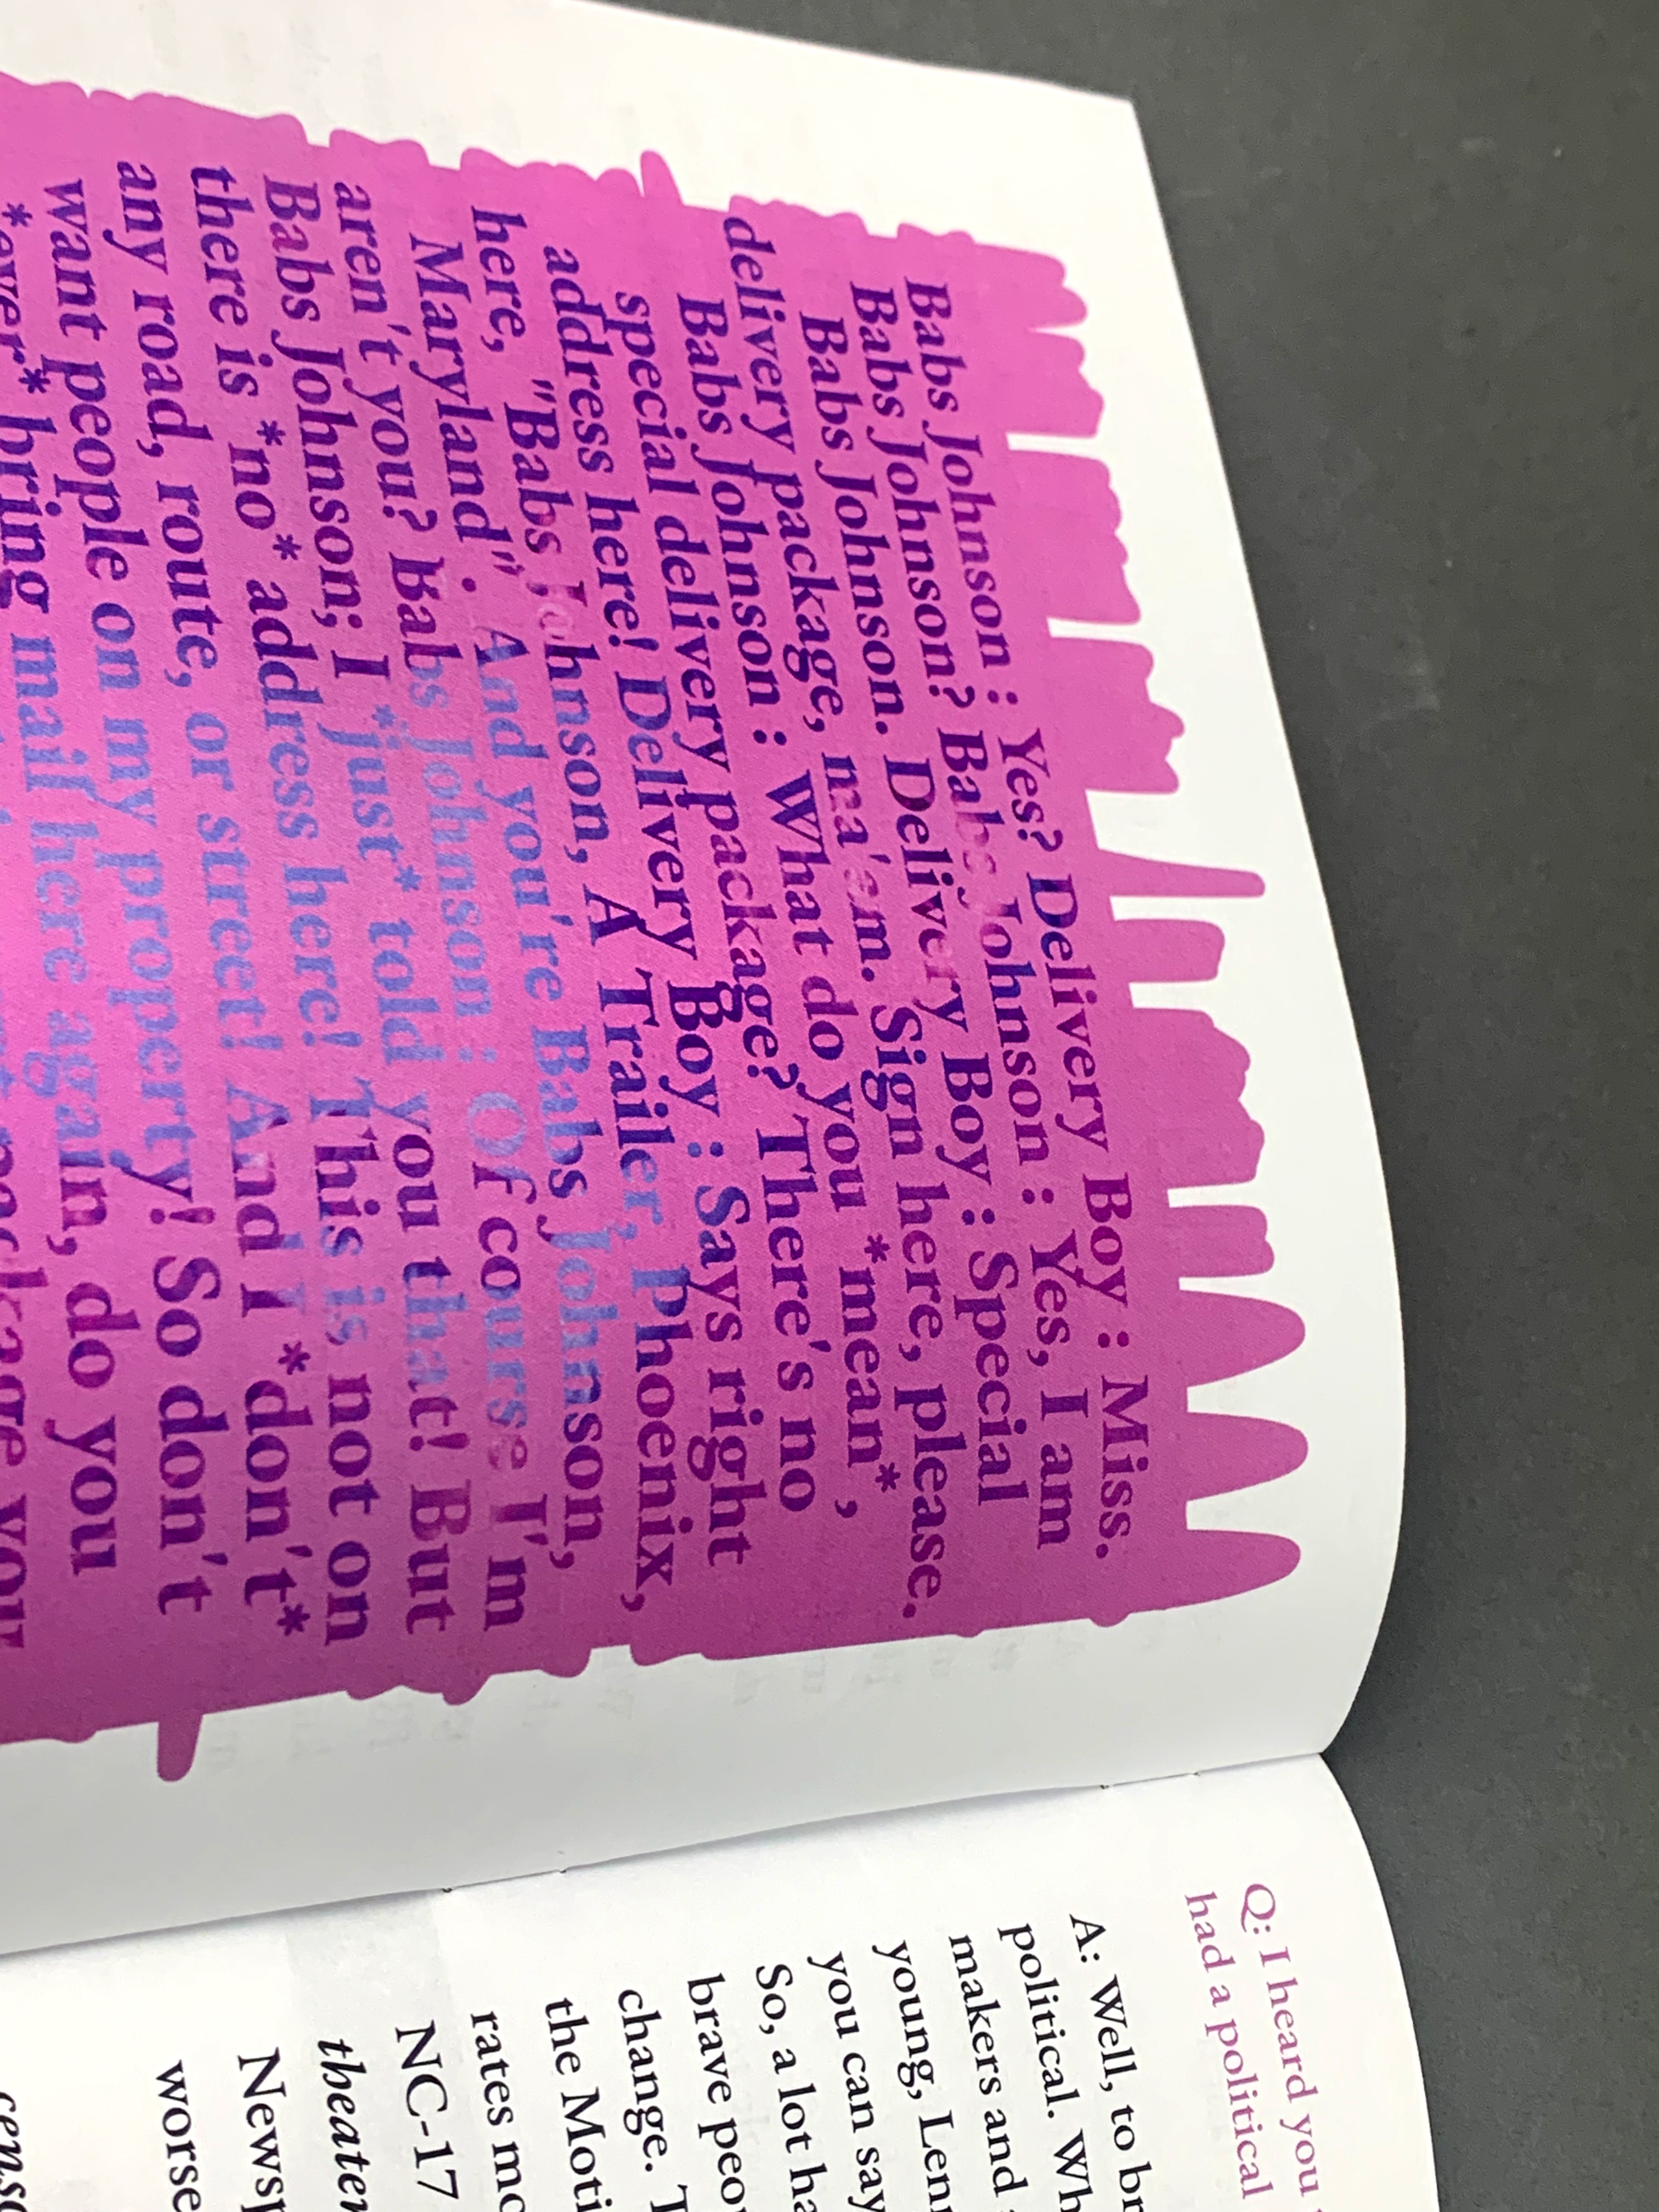 Babs Johnson : Yes? Delivery Boy : Miss.
Babs Johnson? Babs Johnson : Yes, I am
Babs Johnson. Delivery Boy : Special
delivery package, ma'am. Sign here, please.
Babs Johnson : What do you *mean*,
special delivery package? There's no
address here! Delivery Boy : Says right
here, "Babs Johnson, A Trailer, Phoenix,
Maryland". And you're Babs Johnson,
aren't you? Babs Johnson : Of course I'm
Babs Johnson; I *just* told you that! But
there is *no* address here! This is not on
any road, route, or street! And I *don't*
want people on my property! So don't
*ever* bring mail here again, do you
Q: I heard you
had a political
A: Well, to
political.
makers and
young,
you can say
So, a lot
brave
change.
the
rates
NC-17
theater
worse